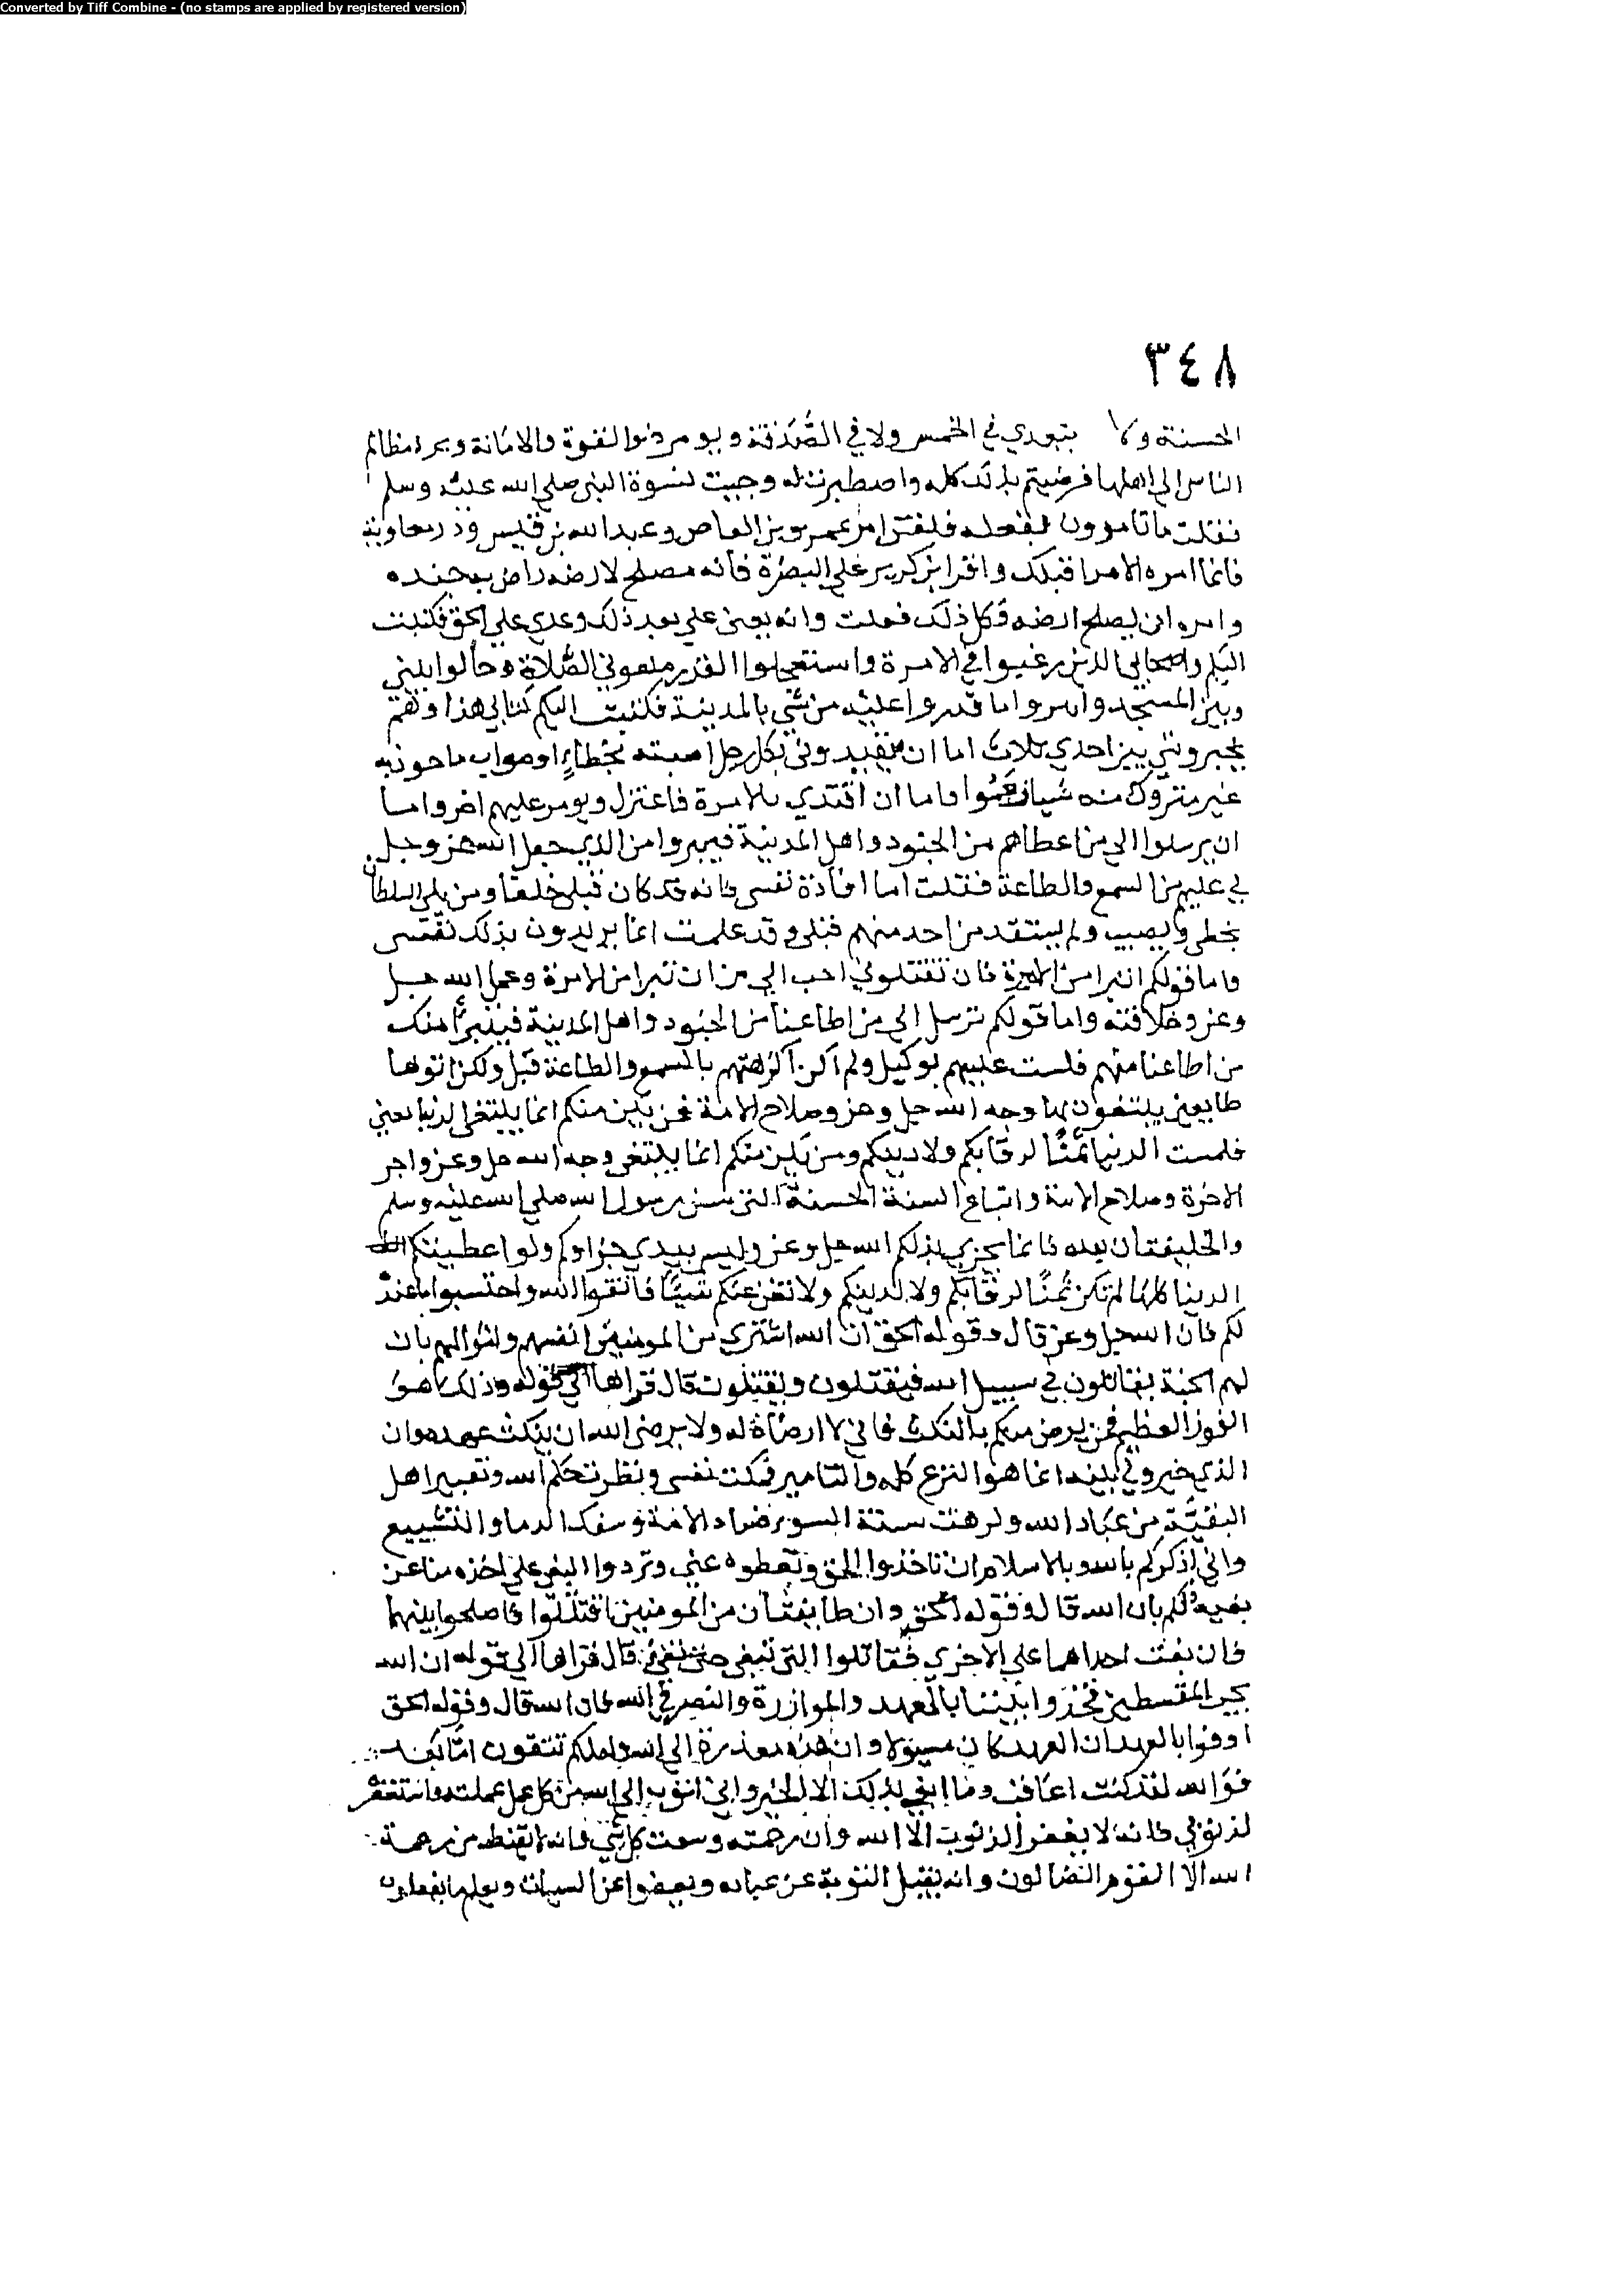 Converted by Tiff Combine - (no stamps are applied by registered version)
٣٤٨
الحسنة ولا يتعدي في الخمس ولا في الصدقة ويومر ذوا القوة والامانة ويرد مظالم
الناس الي اهلها فرضيتم بذلك كله واصطبرت له وجيت لنسوة النبي صلي الله عليه وسلم
فقلت ما تامرون لفعله فلقتن امر عمرو بن العاص وعبدالله بن قيس وذر معاوية
فانما امره الامر اقبلك واقر ابن كريز علي البصرة فانه مصلح لارضه راض بجنده
وامره ان يصلح ارضه وكل ذلك فعلت وانه بعتي علي بعد ذلك وعدي علي الحق فكتبت
اليكم واصحابي الذين رغبوا في الامرة واستعجلوا القدر منعوني الصلاة وحالوا بيني
وبين المسجد وامروا ما قدروا عليه من شي بالمدينة فكتبت اليكم كتابي هذا وهم
يخيرونني بين احدي ثلاث اما ان يقيدوني بكل رجل اصبته بخطاء او صواب ماخوذ به
غير متروك منه شيا زعموا واما ان افتدي بالامرة فاعتزل ويومر عليهم اخر واما
ان يرسلوا الي من اعطاهم من الجنود واهل المدينة فيبروا من الذي جعل الله عز وجل
لي عليهم من السمع والطاعة فقلت اما اقادة نفسي فانه قد كان قبلي خلفا ومن يلي السلطان
يخطي ويصيب ولم يستقد من احد منهم قبلي وقد علمت انما يريدون بذلك نفسي
واما قولكم اتبرا من الامرة فان تقتلوني احب الي من ان تبرا من الامرة وعمل الله جل
وعز وخلافته واما قولكم ترسل الي من اطاعنا من الجنود واهل المدينة فيتبرأ منك
من اطاعنا منهم فلست عليهم بوكيل ولم اكن اكرهتهم بالسمع والطاعة قبل ولكن اتوها
طايعين يبتغون بها وجه الله جل وعز وصلاح الامة فمن يكن منكم انما يبتغي الدنيا يعني
فلست الدنيا ثمنًا لرقابكم ولا دينكم ومن يكن منكم انما يبتغي وجه الله جل وعز واجر
الاخرة وصلاح الامة واتباع السنة الحسنة التي سن رسول الله صلي الله عليه وسلم
والخليفتان بعده فانما يجزي بذلكم الله جل وعز وليس بيدي جزاوكم ولو اعطيتكم
الدنيا كلها لم تكن ثمنًا لرقابكم ولا لدينكم ولا تغن عنكم شيئًا فاتقوا الله واحتسبوا ما عنده
لكم فان الله جل وعز قال وقوله الحق ان الله اشتري من المومنين انفسهم واموالهم بان
لهم الجنة يقاتلون في سبيل الله فيقتلون ويقتلون قال قراها الي قوله وذلك هو
الفوز العظيم فمن يرض منكم بالنكث فاني لا ارضاه له ولا يرضي الله ان ينكث عهده وان
الذي خيروني بينه انما هو النزع كله والتامير فملكت نفسي ونظرت حكم الله وتغيير اهل
البقية من عباد الله وكرهت سنة السو وفساد الامة وسفك الدما والتشييع
واني اذكركم بالله وبالاسلام ان تاخذوا الحق وتعطوه عني وتردوا البغي علي اخذه منا عن
بغيه لكم بان الله قال وقوله الحق وان طايفتان من المومنين اقتتلوا فاصلحوا بينهما
فان بغت احداهما علي الاخري فقاتلوا التي تبغي حتي تفي قال قراها الي قوله ان الله
يحب المقسطين فخذوا بيننا بالعهد والموازرة والنصر في الله فان الله قال وقوله الحق
اوفوا بالعهد ان العهد كان مسيولا وان هذه معذرة الي الله ولعلكم تتقون اما بعد
فوالله لقد كنت اعاقب وما ابغي بذلك الا الخير واني اتوب الي الله من كل عمل عملته واستغفره
لذنوبي فانه لا يغفر الذنوب الا الله وان رحمته وسعت كل شي وانه لا يقنط من رحمة
الله الا القوم الضالون وانه يقبل التوبة عن عباده ويعفوا عن السيات ويعلم ما يفعلون